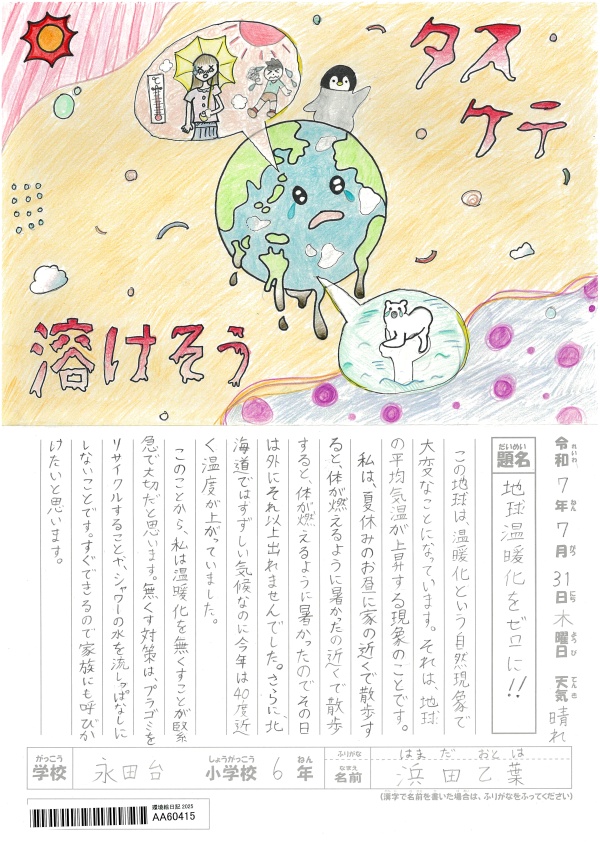 タス
ケテ
℃
溶けそう
令和7年7月31日木曜日 天気 晴れ
れいわ ねん がつ にち ようび てんき
だいめい
題名 地球温暖化をゼロに!!
この地球は、温暖化という自然現象で
大変なことになっています。それは、地球
の平均気温が上昇する現象のことです。
私は、夏休みのお昼に家の近くで散歩す
ると、体が燃えるように暑かったの近くで散歩
すると、体が燃えるように暑かったのでその日
は外にそれ以上出れませんでした。さらに、北
海道ではすずしい気候なのに今年は40度近
く温度が上がっていました。
このことから、私は温暖化を無くすことが緊
急で大切だと思います。無くす対策は、プラゴミを
リサイクルすることや、シャワーの水を流しっぱなしに
しないことです。すぐできるので家族にも呼びか
けたいと思います。
がっこう しょうがっこう ねん ふりがな はまだ おとは
学校 永田台 小学校 6年 なまえ 名前 浜田乙葉
(漢字で名前を書いた場合は、ふりがなをふってください)
環境絵日記 2025
AA60415